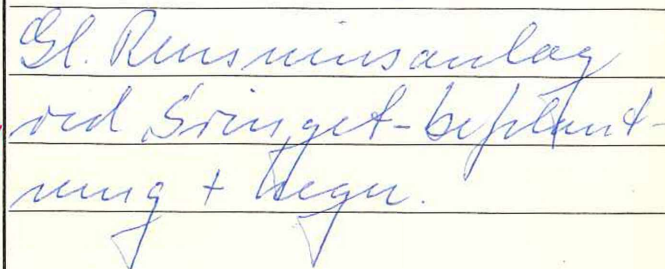 Gl. Rensningsanlæg
ved Svinget - beplant-
ning + hegn.